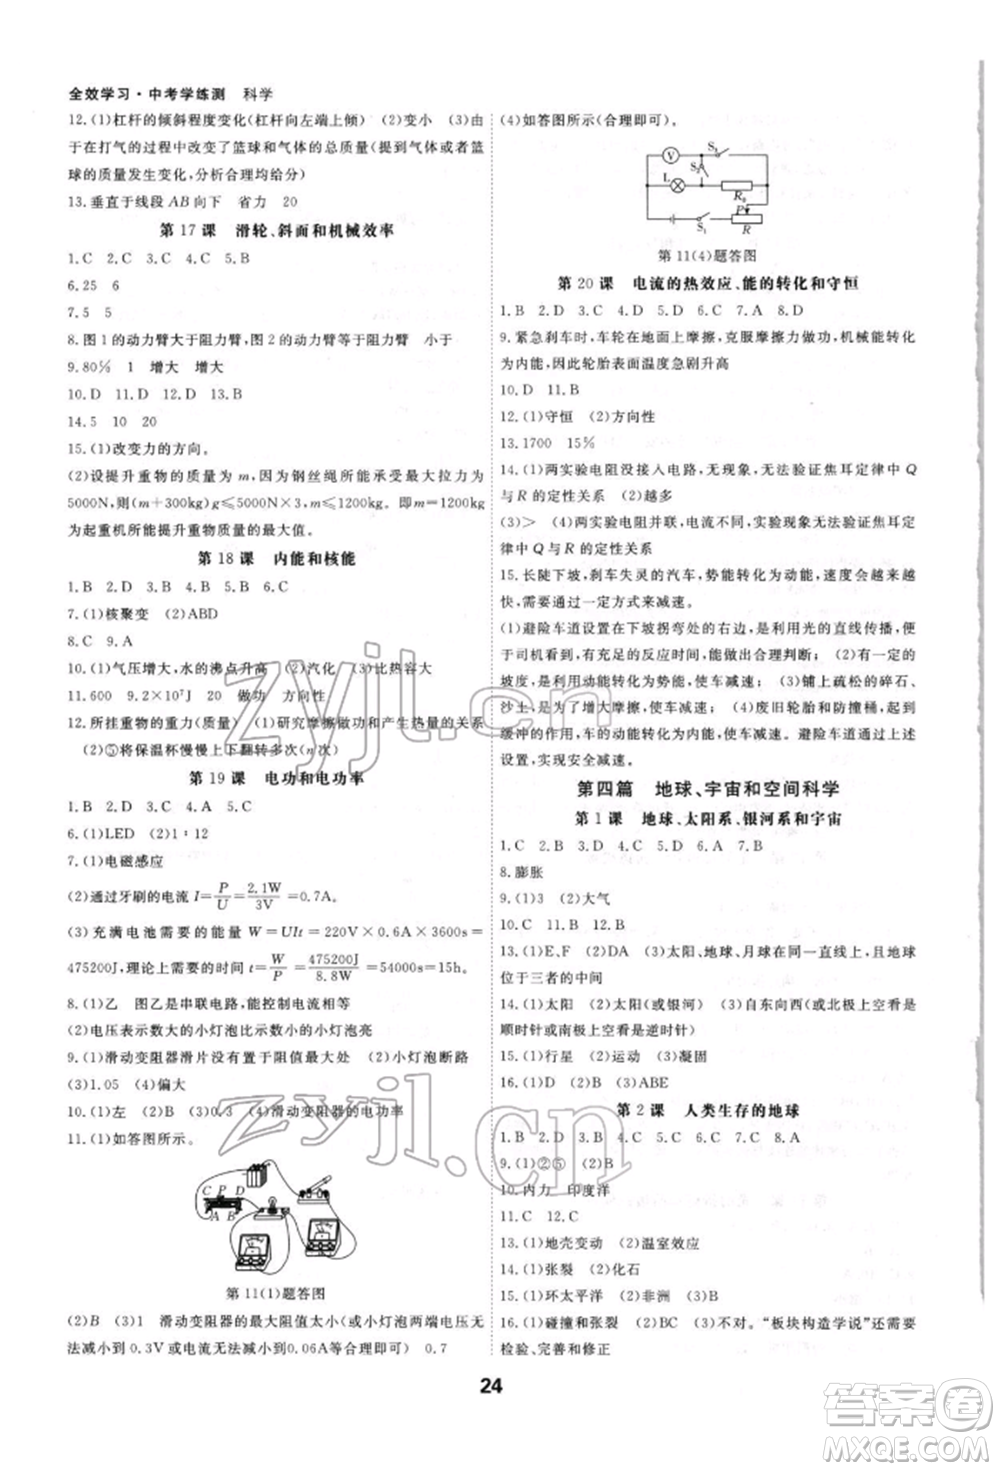 全效学习·中考学练测　科学
12.(1)杠杆的倾斜程度变化(杠杆向左端上倾)　(2)变小　(3)由
于在打气的过程中改变了篮球和气体的总质量(提到气体或者篮
球的质量发生变化,分析合理均给分)
13.垂直于线段AB向下　省力　20
第 17 课　滑轮、斜面和机械效率
1.C　2.C　3.C　4.C　5.B
6.25　6
7.5　5
8.图 1 的动力臂大于阻力臂,图 2 的动力臂等于阻力臂　小于
9.80%　1　增大　增大
10.D　11.D　12.D　13.B
14.5　10　20
15.(1)改变力的方向。
(2)设提升重物的质量为 m,因为钢丝绳所能承受最大拉力为
5000N,则(m+300kg)g≤5000N×3,m≤1200kg。即m=1200kg
为起重机所能提升重物质量的最大值。
第 18 课　内能和核能
1.B　2.D　3.D　4.B　5.B　6.C
7.(1)核聚变　(2)ABD
8.C　9.A
10.(1)气压增大,水的沸点升高　(2)汽化　(3)比热容大
11.600　9.2×10⁷J　20　做功　方向性
12.所挂重物的重力(质量)　(1)研究摩擦做功和产生热量的关系
(2)⑤将保温杯慢慢上下翻转多次(n次)
第 19 课　电功和电功率
1.B　2.D　3.C　4.A　5.C
6.(1)LED　(2)1∶12
7.(1)电磁感应
(2)通过牙刷的电流 I=P/U=2.1W/3V=0.7A。
(3)充满电池需要的能量 W=UIt=220V×0.6A×3600s=
475200J,理论上需要的时间 t=W/P=475200J/8.8W=54000s=15h。
8.(1)乙　图乙是串联电路,能控制电流相等
(2)电压表示数大的小灯泡比示数小的小灯泡亮
9.(1)滑动变阻器滑片没有置于阻值最大处　(2)小灯泡断路
(3)1.05　(4)偏大
10.(1)左　(2)B　(3)0.3　(4)滑动变阻器的电功率
11.(1)如答图所示。
C P D
第 11(1)题答图
(2)B　(3)1　滑动变阻器的最大阻值太小(或小灯泡两端电压无
法减小到 0.3V或电流无法减小到0.06A等合理即可)　0.7
(4)如答图所示(合理即可)。
V S₃
S₂
L
R₀
P
S₁ R
第 11(4)题答图
第 20 课　电流的热效应、能的转化和守恒
1.B　2.D　3.C　4.D　5.C　6.D　7.A　8.D
9.紧急刹车时,车轮在地面上摩擦,克服摩擦力做功,机械能转化
为内能,因此轮胎表面温度急剧升高
10.D　11.B
12.(1)守恒　(2)方向性
13.1700　15%
14.(1)两实验电阻没接入电路,无法验证焦耳定律中 Q
与 R 的定性关系　(2)越多
(3)>　(4)两实验电阻并联,电流不同,实验现象无法验证焦耳定
律中 Q 与 R 的定性关系
15.长陡下坡,刹车失灵的汽车,势能转化为动能,速度会越来越
快,需要通过一定方式来减速。
(1)避险车道设置在下坡拐弯处的右边,是利用光的直线传播,便
于司机看到,有充足的反应时间,作出合理判断;(2)有一定的
坡度,是为了将动能转化为势能,使车减速;(3)铺上疏松的碎石、
沙土,是为了增大摩擦,使车减速;(4)废旧轮胎和防撞桶,起到
缓冲的作用,车的动能转化为内能,使车减速。避险车道通过上述
设置,实现安全减速。
第四篇　地球、宇宙和空间科学
第 1 课　地球、太阳系、银河系和宇宙
1.C　2.C　3.B　4.D　5.C　6.A　7.B
8.膨胀
9.(1)3　(2)大气
10.C　11.B　12.B
13.(1)E、F　(2)DA　(3)太阳、地球、月球在同一直线上,且地球
位于三者的中间
14.(1)太阳　(2)太阳(或银河)　(3)自东向西(或北极上空看是
顺时针或南极上空看是逆时针)
15.(1)行星　(2)运动　(3)凝固
16.(1)D　(2)B　(3)ABE
第 2 课　人类生存的地球
1.B　2.D　3.B　4.C　5.C　6.B　7.C　8.A
9.(1)②⑤　(2)B
10.内力　印度洋
11.C　12.C
13.(1)地壳变动　(2)温室效应
14.(1)张裂　(2)化石
15.(1)环太平洋　(2)非洲　(3)B
16.(1)碰撞和张裂　(2)BC　(3)不对。“板块构造学说”还需要
检验、完善和修正
24
zyjl.cn
zyjl.cn
答案圈
MXQE.COM